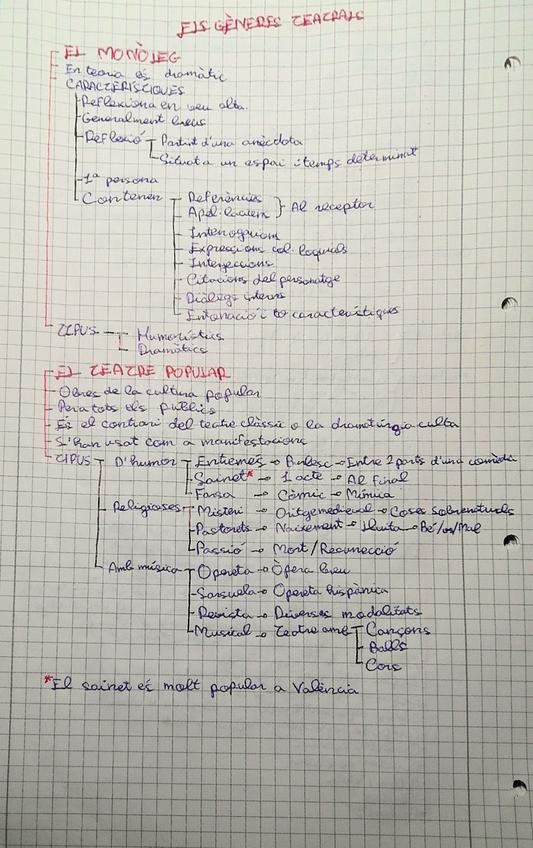 ELS GÈNERES TEATRALS
EL MONÒLEG
En teoria és dramàtic
CARACTERÍSTIQUES
Reflexiona en veu alta
Generalment breus
Reflexió Partint d'una anècdota
Situat a un espai i temps determinat
1ª persona
Contenen Referències
Apel·lacions } Al receptor
Interrogacions
Expressions col·loquials
Interjeccions
Citacions del personatge
Diàlegs interns
Entonació i to característiques
TIPUS Humorístics
Dramàtics
EL TEATRE POPULAR
Obres de la cultura popular
Per a tots els públics
És el contrari del teatre clàssic o la dramatúrgia culta
S'han usat com a manifestacions
TIPUS D'humor Entremés → Burlesc → Entre 2 parts d'una comèdia
Sainet* → 1 acte → Al final
Farsa → Còmic → Mímica
Religioses Misteri → Origen medieval → Coses sobrenaturals
Pastorets → Naixement → Lluita → Bé/vs/Mal
Passió → Mort/Resurrecció
Amb música Opereta → Òpera breu
Sarsuela → Opereta hispànica
Revista → Diverses modalitats
Musical → Teatre amb Cançons
Balls
Cors
*El sainet és molt popular a València